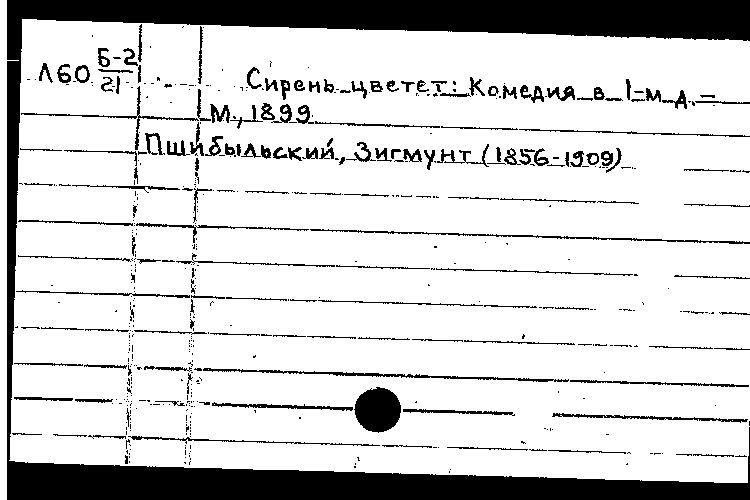 Л60 Б-2/21 Сирень цветет: Комедия в 1-м д. –
М., 1899
Пшибыльский, Зигмунт (1856-1909)